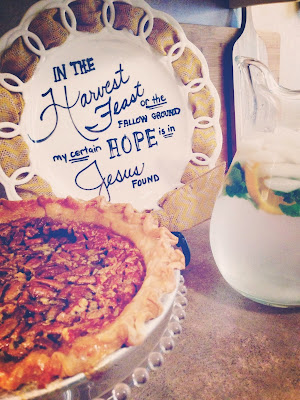 IN THE
Harvest
Feast or the
FALLOW GROUND
my certain HOPE is in
Jesus
FOUND